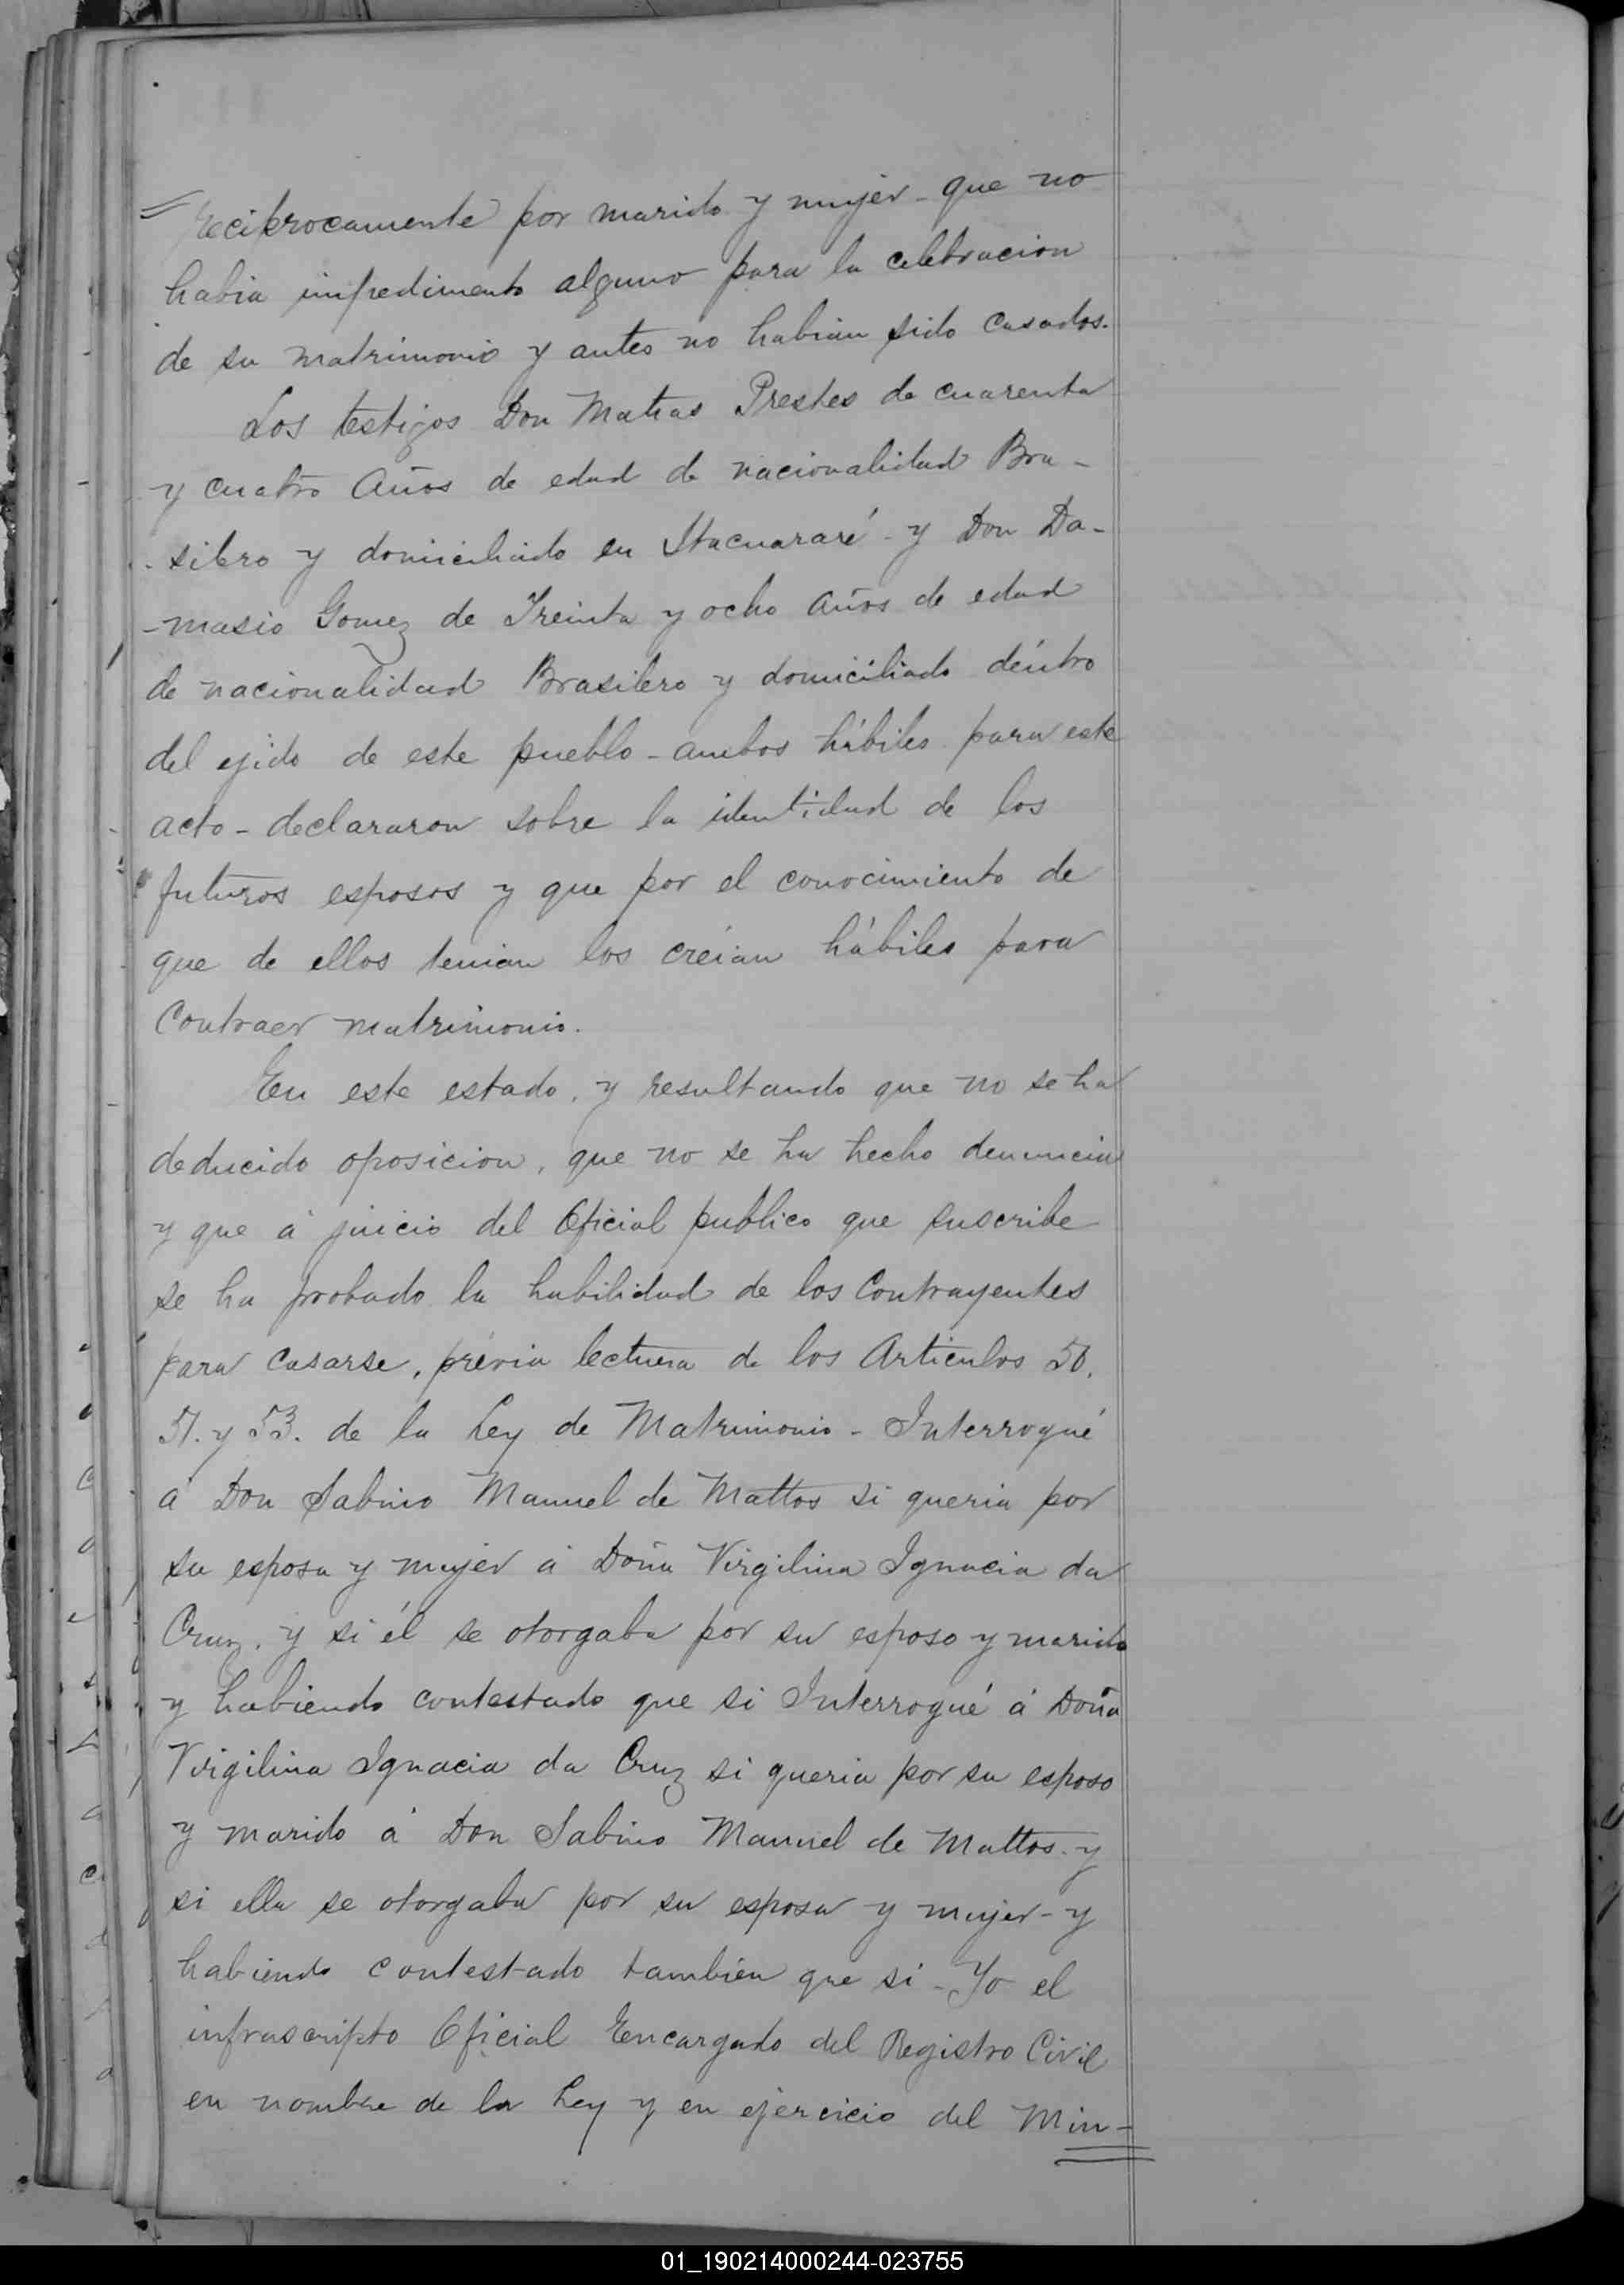 = reciprocamente por marido y mujer - que no
habia impedimento alguno para la celebracion
de su matrimonio y antes no habian sido casados.
Los testigos Don Matias Prestes de cuarenta
y cuatro Años de edad de nacionalidad Bra-
silero y domiciliado en Itacuararé - y Don Da-
-masio Gomez de Treinta y ocho años de edad
de nacionalidad Brasilero y domiciliado déntro
del ejido de este pueblo - ambos hábiles para este
acto - declararon sobre la identidad de los
futuros esposos y que por el conocimiento de
que de ellos tenian los creian hábiles para
contraer matrimonio.
En este estado, y resultando que no se ha
deducido oposicion, que no se ha hecho denuncia
y que á juicio del Oficial publico que suscribe
se ha probado la habilidad de los Contrayentes
para casarse, prévia lectura de los Articulos 50.
51. y 53. de la Ley de Matrimonio - Interrogué
á Don Sabino Manuel de Mattos si queria por
su esposa y mujer á Doña Virgilina Ignacia da
Cruz. y si él se otorgaba por su esposo y marido
y habiendo contestado que si Interrogué á Doña
Virgilina Ignacia da Cruz si queria por su esposo
y marido á Don Sabino Manuel de Mattos. y
si ella se otorgaba por su esposa y mujer - y
habiendo contestado tambien que si - Yo el
infrascripto Oficial Encargado del Registro Civil
en nombre de la Ley y en ejercicio del Min-
01_190214000244-023755